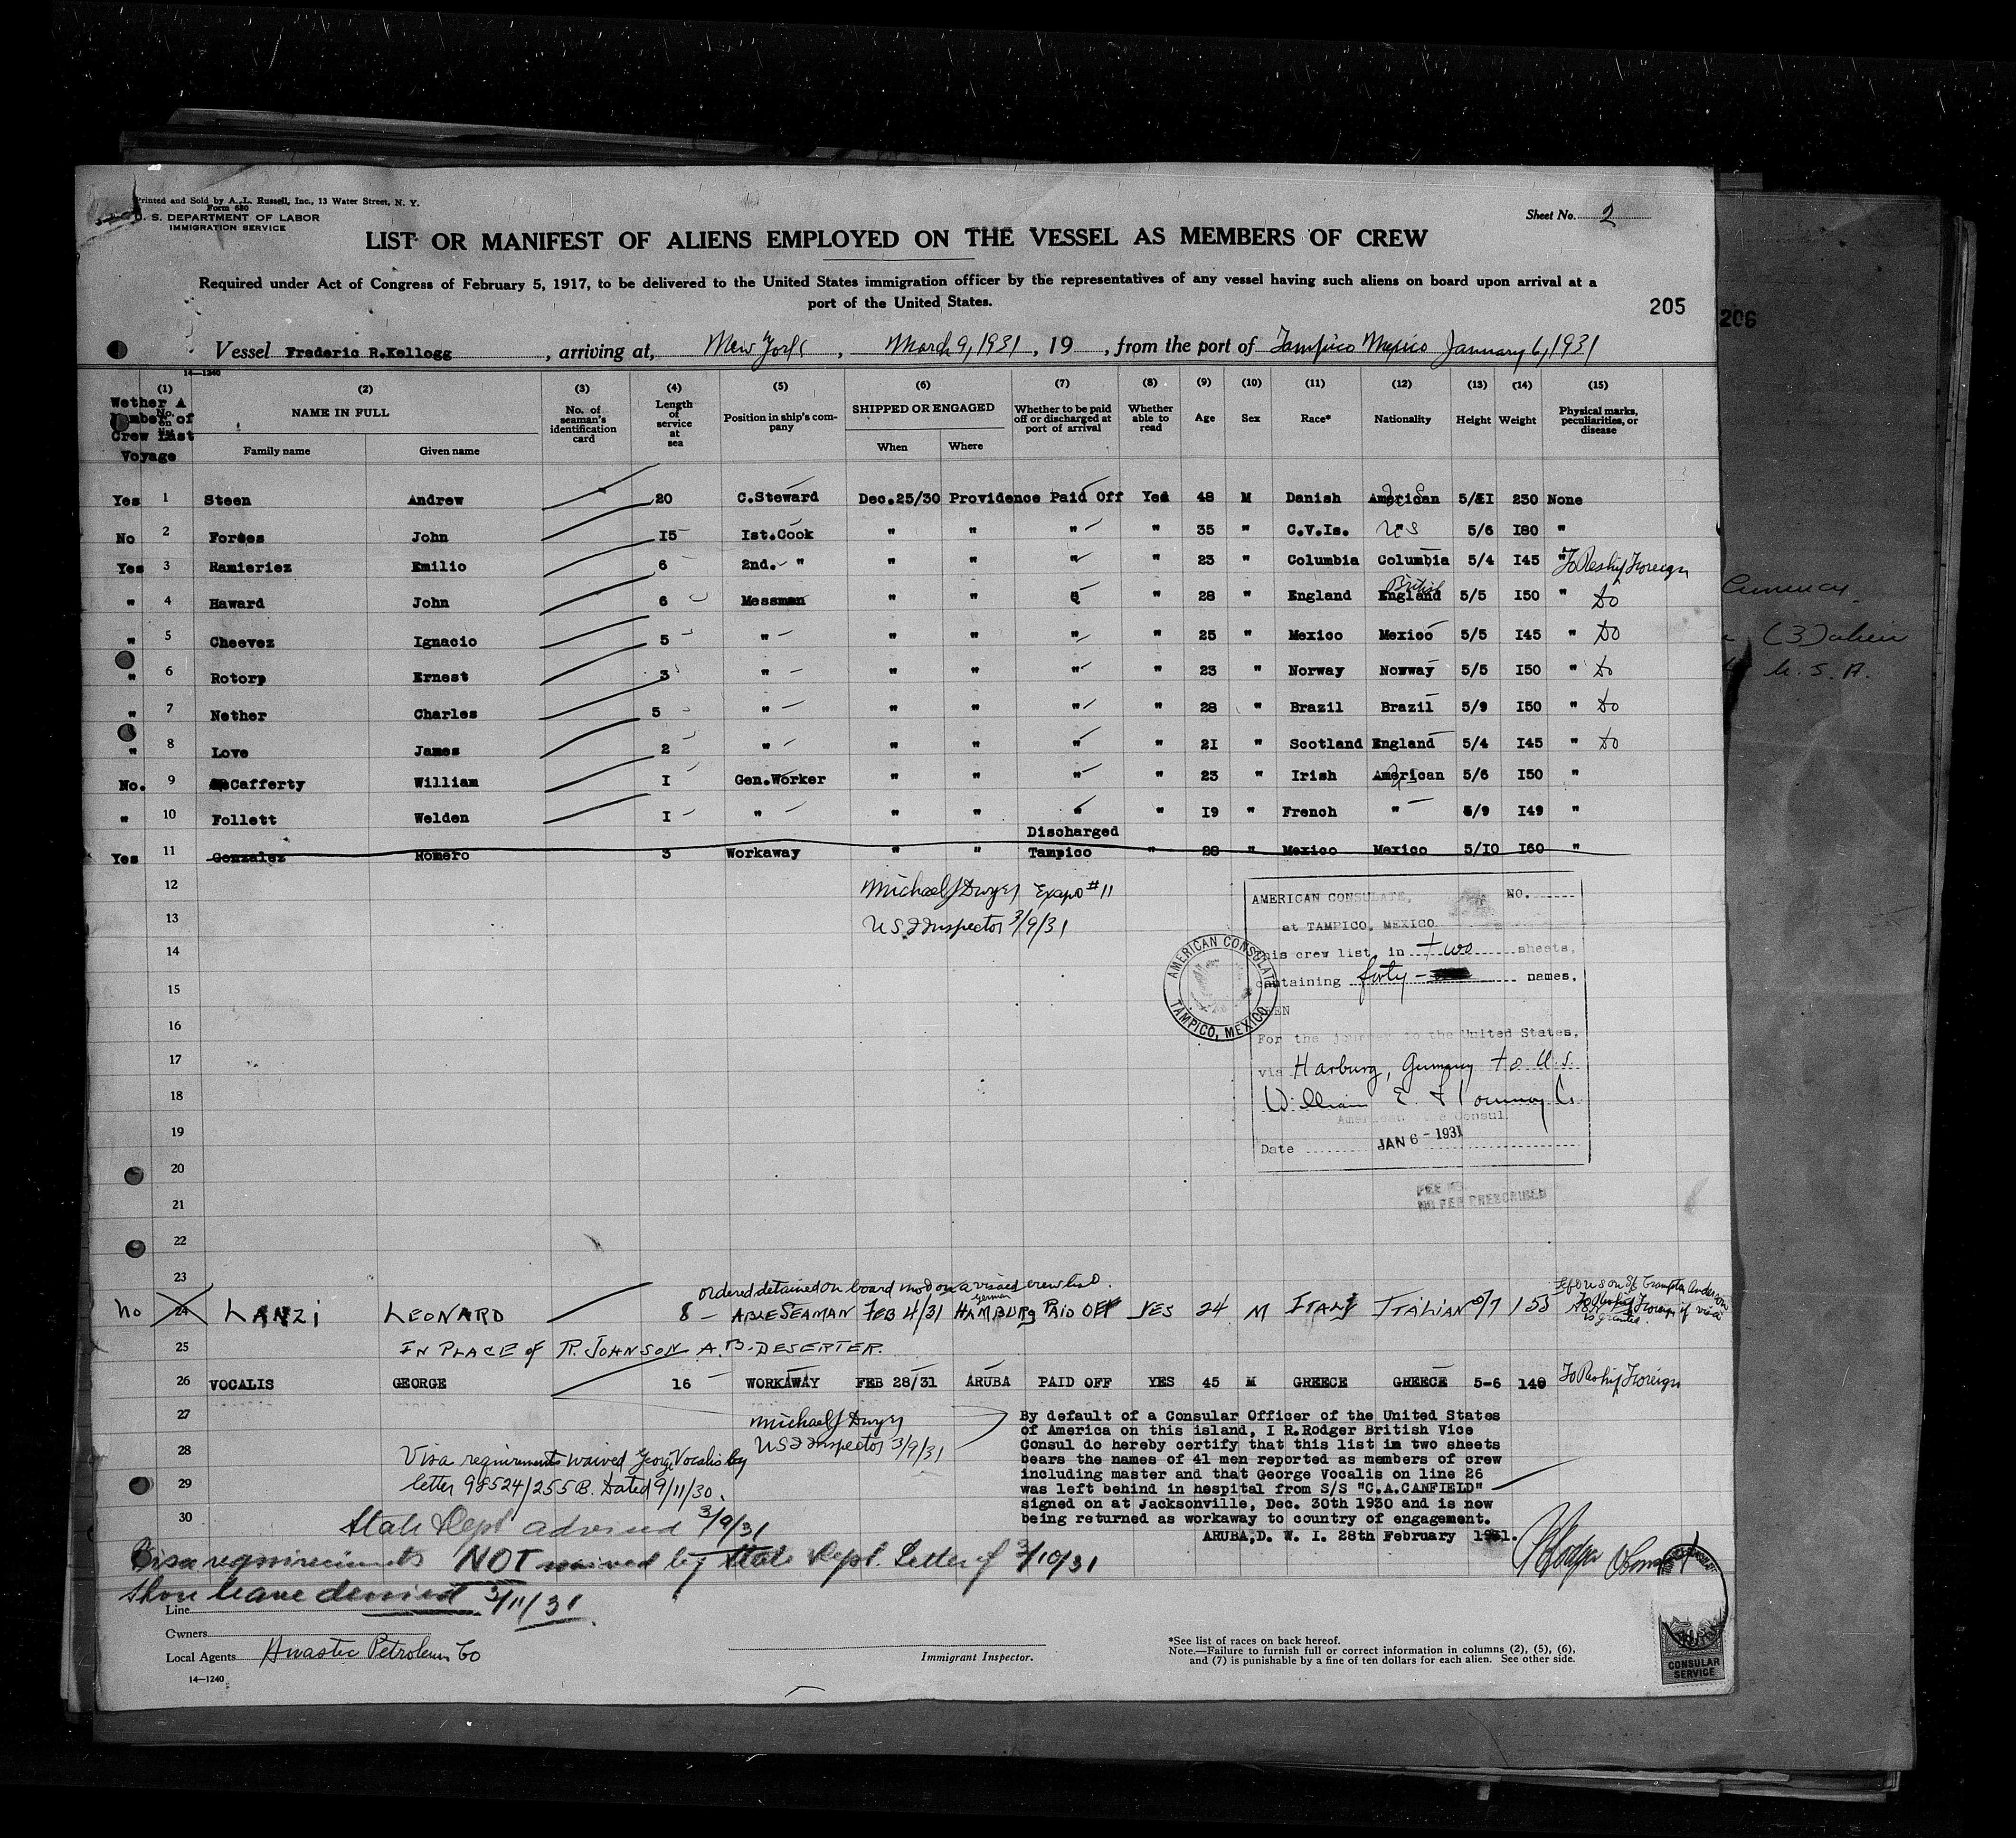 Printed and Sold by A. L. Russell, Inc., 13 Water Street, N. Y.
Form 680
U. S. DEPARTMENT OF LABOR
IMMIGRATION SERVICE
Sheet No. 2
LIST OR MANIFEST OF ALIENS EMPLOYED ON THE VESSEL AS MEMBERS OF CREW
Required under Act of Congress of February 5, 1917, to be delivered to the United States immigration officer by the representatives of any vessel having such aliens on board upon arrival at a
port of the United States.
205
206
Vessel Frederic R.Kellogg, arriving at, New York, March 9, 1931, 19, from the port of Tampico Mexico January 6, 1931
14—1240
(1) (2) (3) (4) (5) (6) (7) (8) (9) (10) (11) (12) (13) (14) (15)
Wether A Number of Crew Last Voyage
No. on list
NAME IN FULL
Family name Given name
No. of seaman's identification card
Length of service at sea
Position in ship's company
SHIPPED OR ENGAGED
When Where
Whether to be paid off or discharged at port of arrival
Whether able to read
Age Sex Race* Nationality Height Weight
Physical marks, peculiarities, or disease
Yes 1 Steen Andrew 20 C.Steward Dec.25/30 Providence Paid Off Yes 48 M Danish American 5/11 230 None
No 2 Forbes John 15 Ist.Cook " " " " 35 " C.V.Is. US 5/6 I80 "
Yes 3 Ramieriez Emilio 6 2nd. " " " " " 23 " Columbia Columbia 5/4 I45 " To Reship Foreign
" 4 Haward John 6 Messman " " " " 28 " England England British 5/5 I50 " Do
" 5 Cheevez Ignacio 5 " " " " " 25 " Mexico Mexico 5/5 I45 " Do
" 6 Rotorp Ernest 3 " " " " " 23 " Norway Norway 5/5 I50 " Do
" 7 Nether Charles 5 " " " " " 28 " Brazil Brazil 5/9 I50 " Do
" 8 Love James 2 " " " " " 2I " Scotland England 5/4 I45 " Do
No. 9 McCafferty William I Gen.Worker " " " " 23 " Irish American 5/6 I50 "
" 10 Follett Welden I " " " " " I9 " French " 5/9 I49 "
Discharged
Yes 11 Gonzalez Romero 3 Workaway " " Tampico " 28 " Mexico Mexico 5/I0 I60 "
12
Michael J Dwyer Exapo #11
13
US I Inspector 3/9/31
14
15
16
17
18
19
20
21
22
23
AMERICAN CONSULATE, NO.
at TAMPICO, MEXICO
this crew list, in two sheets,
containing forty- names,
SEEN
For the journey to the United States,
via Harburg, Germany to U.S.
William E.
American Consul
Date JAN 6 - 1931
AMERICAN CONSULATE
TAMPICO, MEXICO
NO FEE PRESCRIBED
ordered detained on board not on a visaed crew list.
No 24 LANZI LEONARD 8 ABLE SEAMAN FEB 4/31 HAMBURG German PAID OFF YES 24 M ITALY ITALIAN 5/7 155
To Reship Foreign if visa is granted.
25 IN PLACE of R. JOHNSON A.B. DESERTER.
26 VOCALIS GEORGE 16 WORKAWAY FEB 28/31 ARUBA PAID OFF YES 45 M GREECE GREECE 5-6 140 To Reship Foreign
27
Michael J Dwyer
US I Inspector 3/9/31
28
Visa requirements waived George Vocalis by
29
letter 98524/255B. Dated 9/11/30.
30
By default of a Consular Officer of the United States
of America on this island, I R.Rodger British Vice
Consul do hereby certify that this list in two sheets
bears the names of 41 men reported as members of crew
including master and that George Vocalis on line 26
was left behind in hospital from S/S "C.A.CANFIELD"
signed on at Jacksonville, Dec. 30th 1930 and is now
being returned as workaway to country of engagement.
ARUBA,D. W. I. 28th February 1931.
R Rodger
State Dept advised 3/9/31
Visa requirements NOT waived by State Dept. Letter of 3/10/31
Shore leave denied 3/11/31
Line
Owners
Local Agents Huastec Petroleum Co
14—1240
Immigrant Inspector.
*See list of races on back hereof.
Note.—Failure to furnish full or correct information in columns (2), (5), (6),
and (7) is punishable by a fine of ten dollars for each alien. See other side.
CONSULAR
SERVICE
(3) alien
U. S. A.